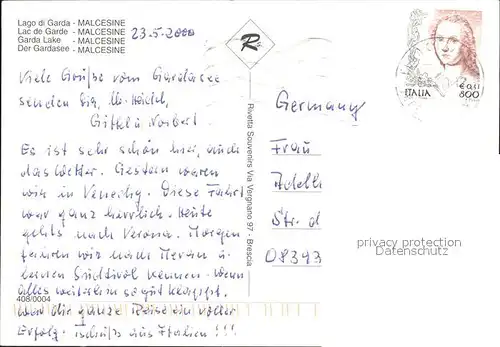 Lago di Garda - MALCESINE
Lac de Garde - MALCESINE
Garda Lake - MALCESINE
Der Gardasee - MALCESINE
23.5.2000
R
Viele Grüße vom Gardasee
senden Sig, U. Heidel,
Gittel u. Norbert.
Es ist sehr schön hier, auch
das Wetter. Gestern waren
wir in Venedig. Diese Fahrt
war ganz herrlich. Heute
gehts nach Verona. Morgen
fahren wir nach Meran u.
lernen Südtirol kennen. Wenn
alles weiterhin so gut klappt,
war die ganze Reise ein voller
Erfolg. Tschüß aus Italien!!!
408/0004
Rivetta Souvenirs Via Vergnano 97 - Brescia
ITALIA
€ 0,41
800
Germany
Frau
Adelh
Str. d
08393
privacy protection
Datenschutz